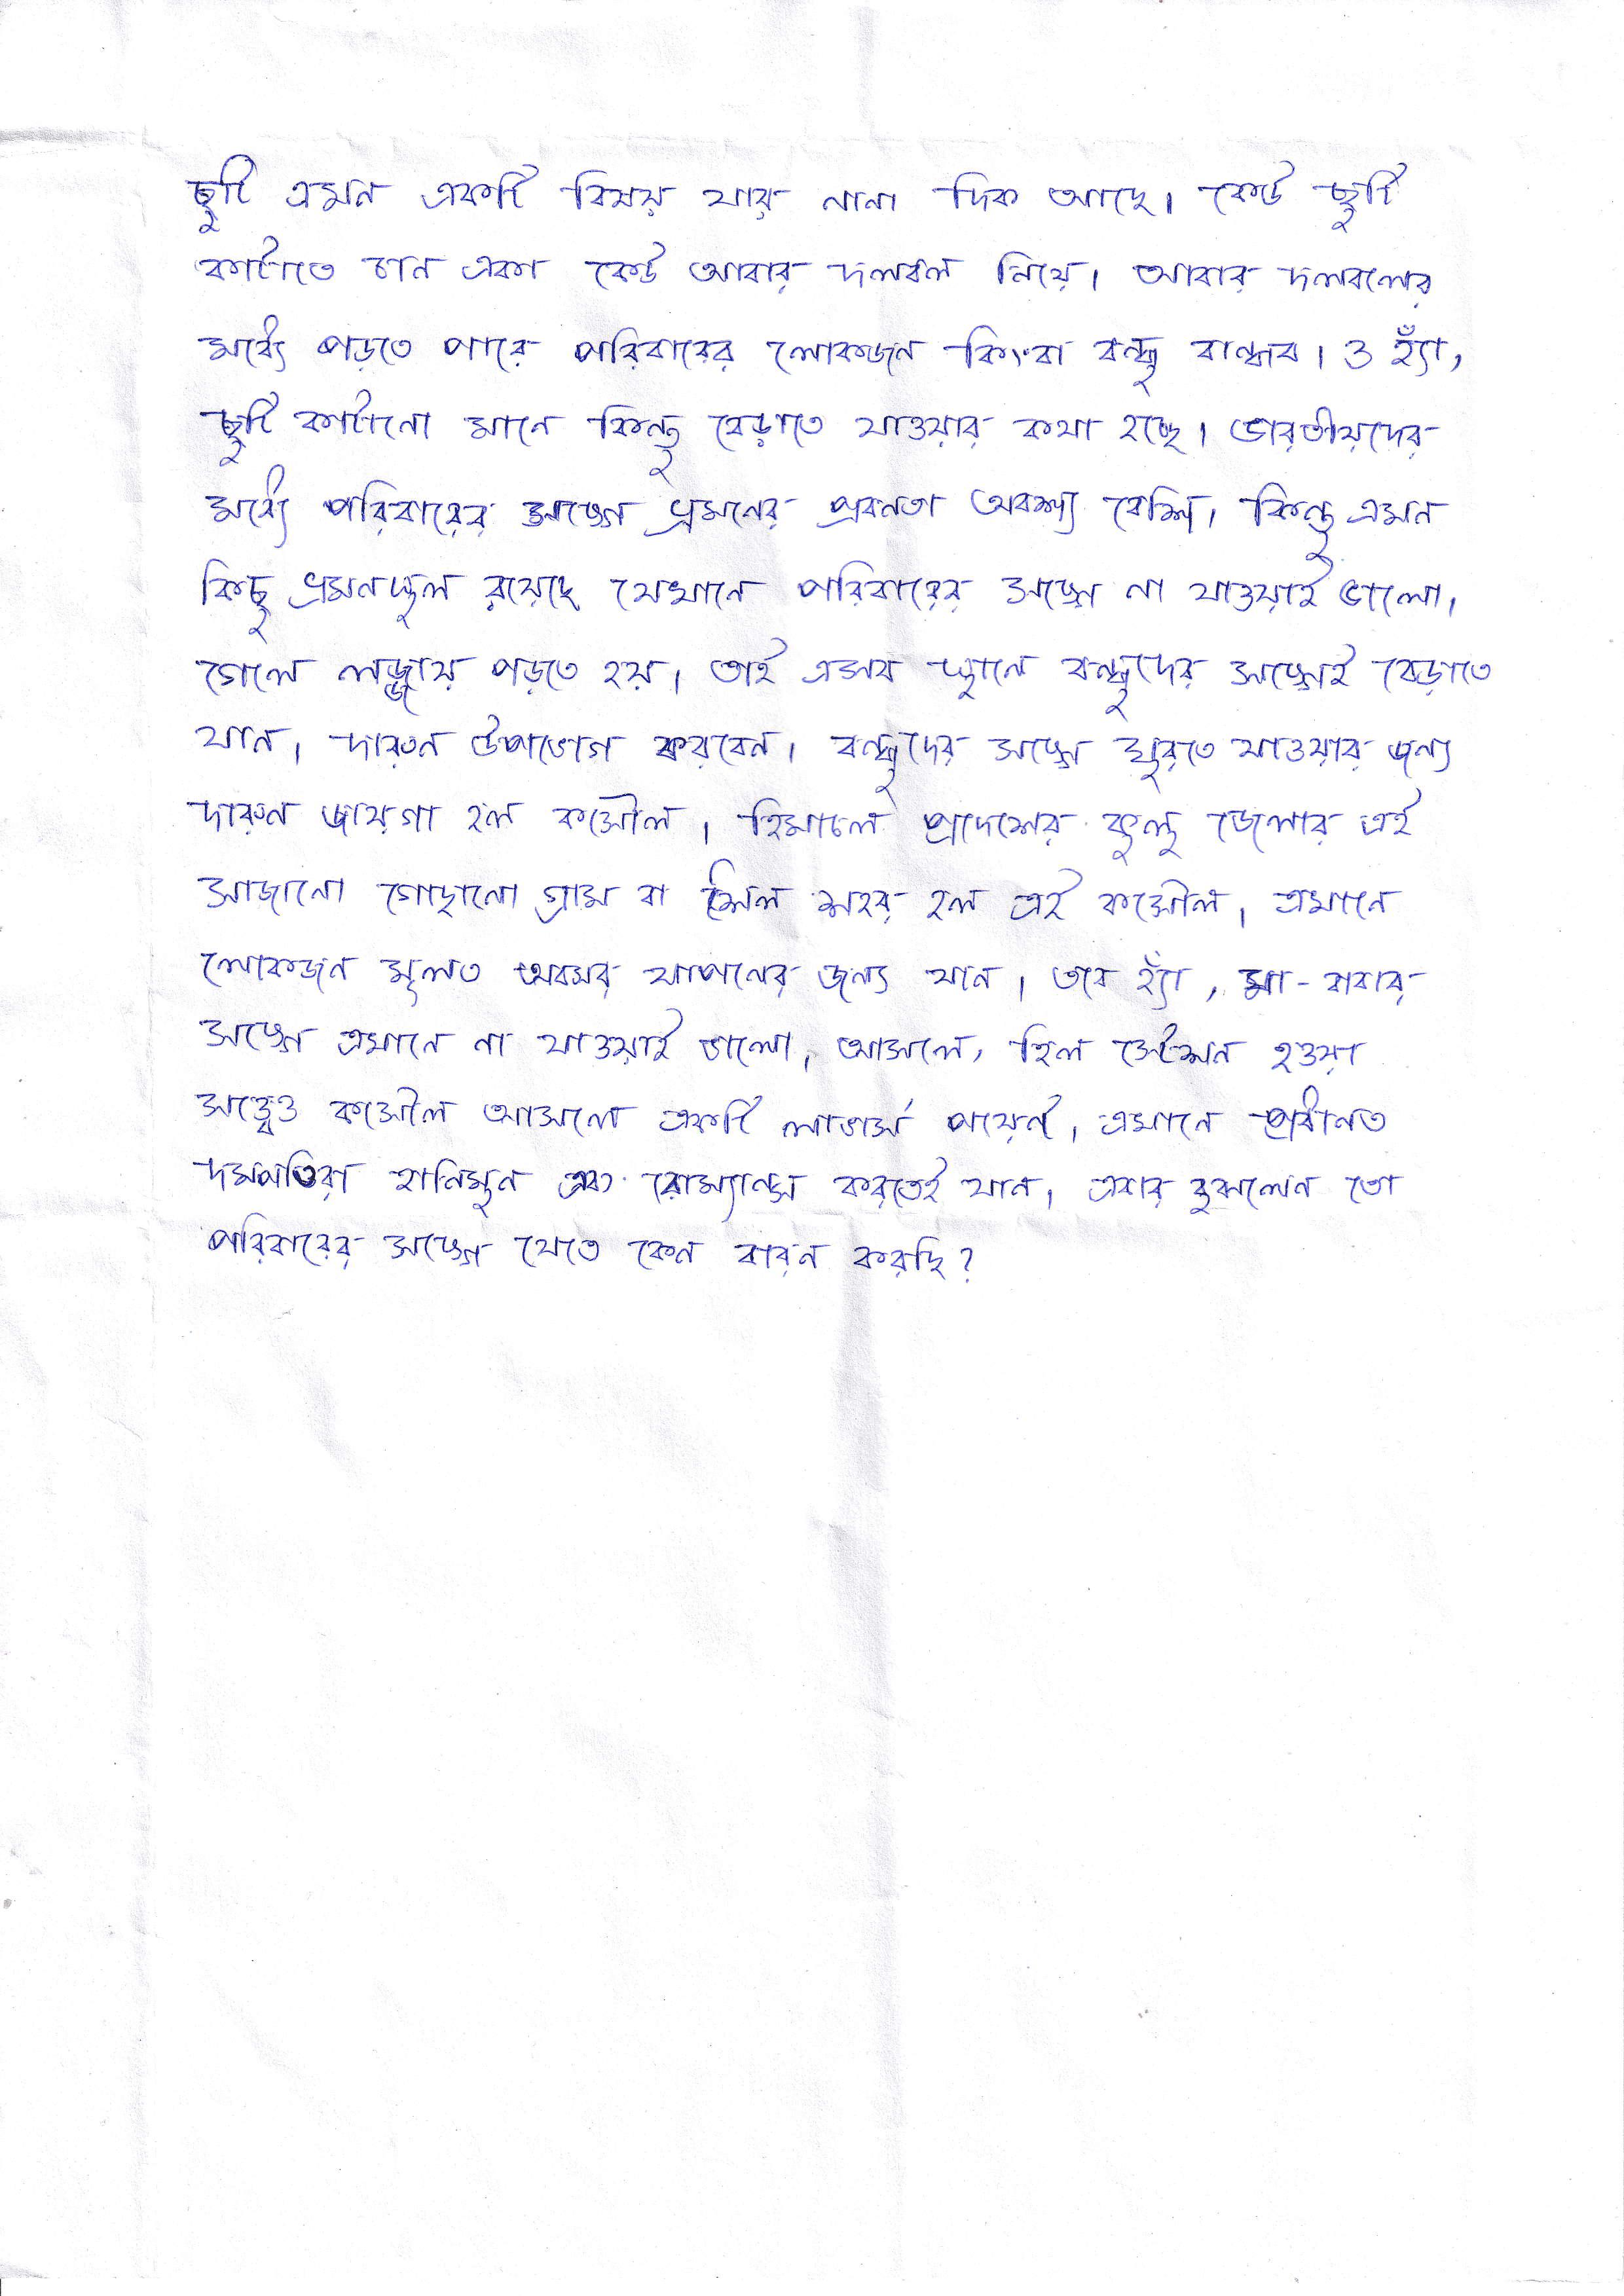 ছুটি এমন একটি বিষয় যার নানা দিক আছে। কেউ ছুটি
কাটাতে চান একা কেউ আবার দলবল নিয়ে। আবার দলবলের
মধ্যে পড়তে পারে পরিবারের লোকজন কিংবা বন্ধু বান্ধব। ও হ্যাঁ,
ছুটি কাটানো মানে কিন্তু বেড়াতে যাওয়ার কথা হচ্ছে। ভারতীয়দের
মধ্যে পরিবারের সঙ্গে ভ্রমনের প্রবনতা অবশ্য বেশি। কিন্তু এমন
কিছু ভ্রমনস্থল রয়েছে যেখানে পরিবারের সঙ্গে না যাওয়াই ভালো।
গেলে লজ্জায় পড়তে হয়। তাই এসব স্থানে বন্ধুদের সঙ্গেই বেড়াতে
যান। দারুন উপভোগ করবেন। বন্ধুদের সঙ্গে ঘুরতে যাওয়ার জন্য
দারুন জায়গা হল কসৌল। হিমাচল প্রদেশের কুলু জেলার এই
সাজানো গোছানো গ্রাম বা শৈল শহর হল এই কসৌল। এখানে
লোকজন মূলত অবসর যাপনের জন্য যান। তবে হ্যাঁ, মা-বাবার
সঙ্গে এখানে না যাওয়াই ভালো। আসলে, হিল স্টেশন হওয়া
সত্ত্বেও কসৌল আসলে একটি লাভার্স পয়েন্ট। এখানে প্রধানত
দম্পতিরা হানিমুন এবং রোম্যান্স করতেই যান। এবার বুঝলেন তো
পরিবারের সঙ্গে যেতে কেন বারন করছি?